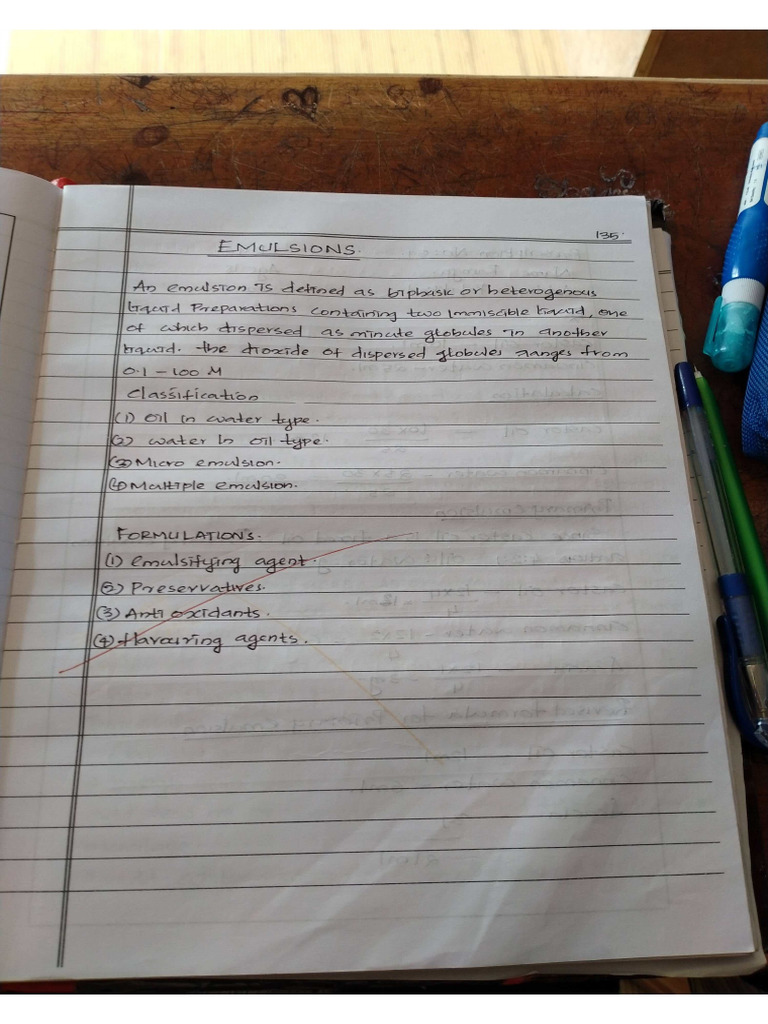 135.
EMULSIONS.
An emulsion is defined as biphasic or heterogenous
liquid Preparations containing two immiscible liquid, one
of which dispersed as minute globules in another
liquid. the dioxide of dispersed globules ranges from
0.1 - 100 M
Classification
(1) Oil in water type.
(2) water in oil type.
(3) Micro emulsion.
(4) Multiple emulsion.
FORMULATIONS.
(1) emulsifying agent.
(2) Preservatives.
(3) Anti oxidants.
(4) Flavouring agents.